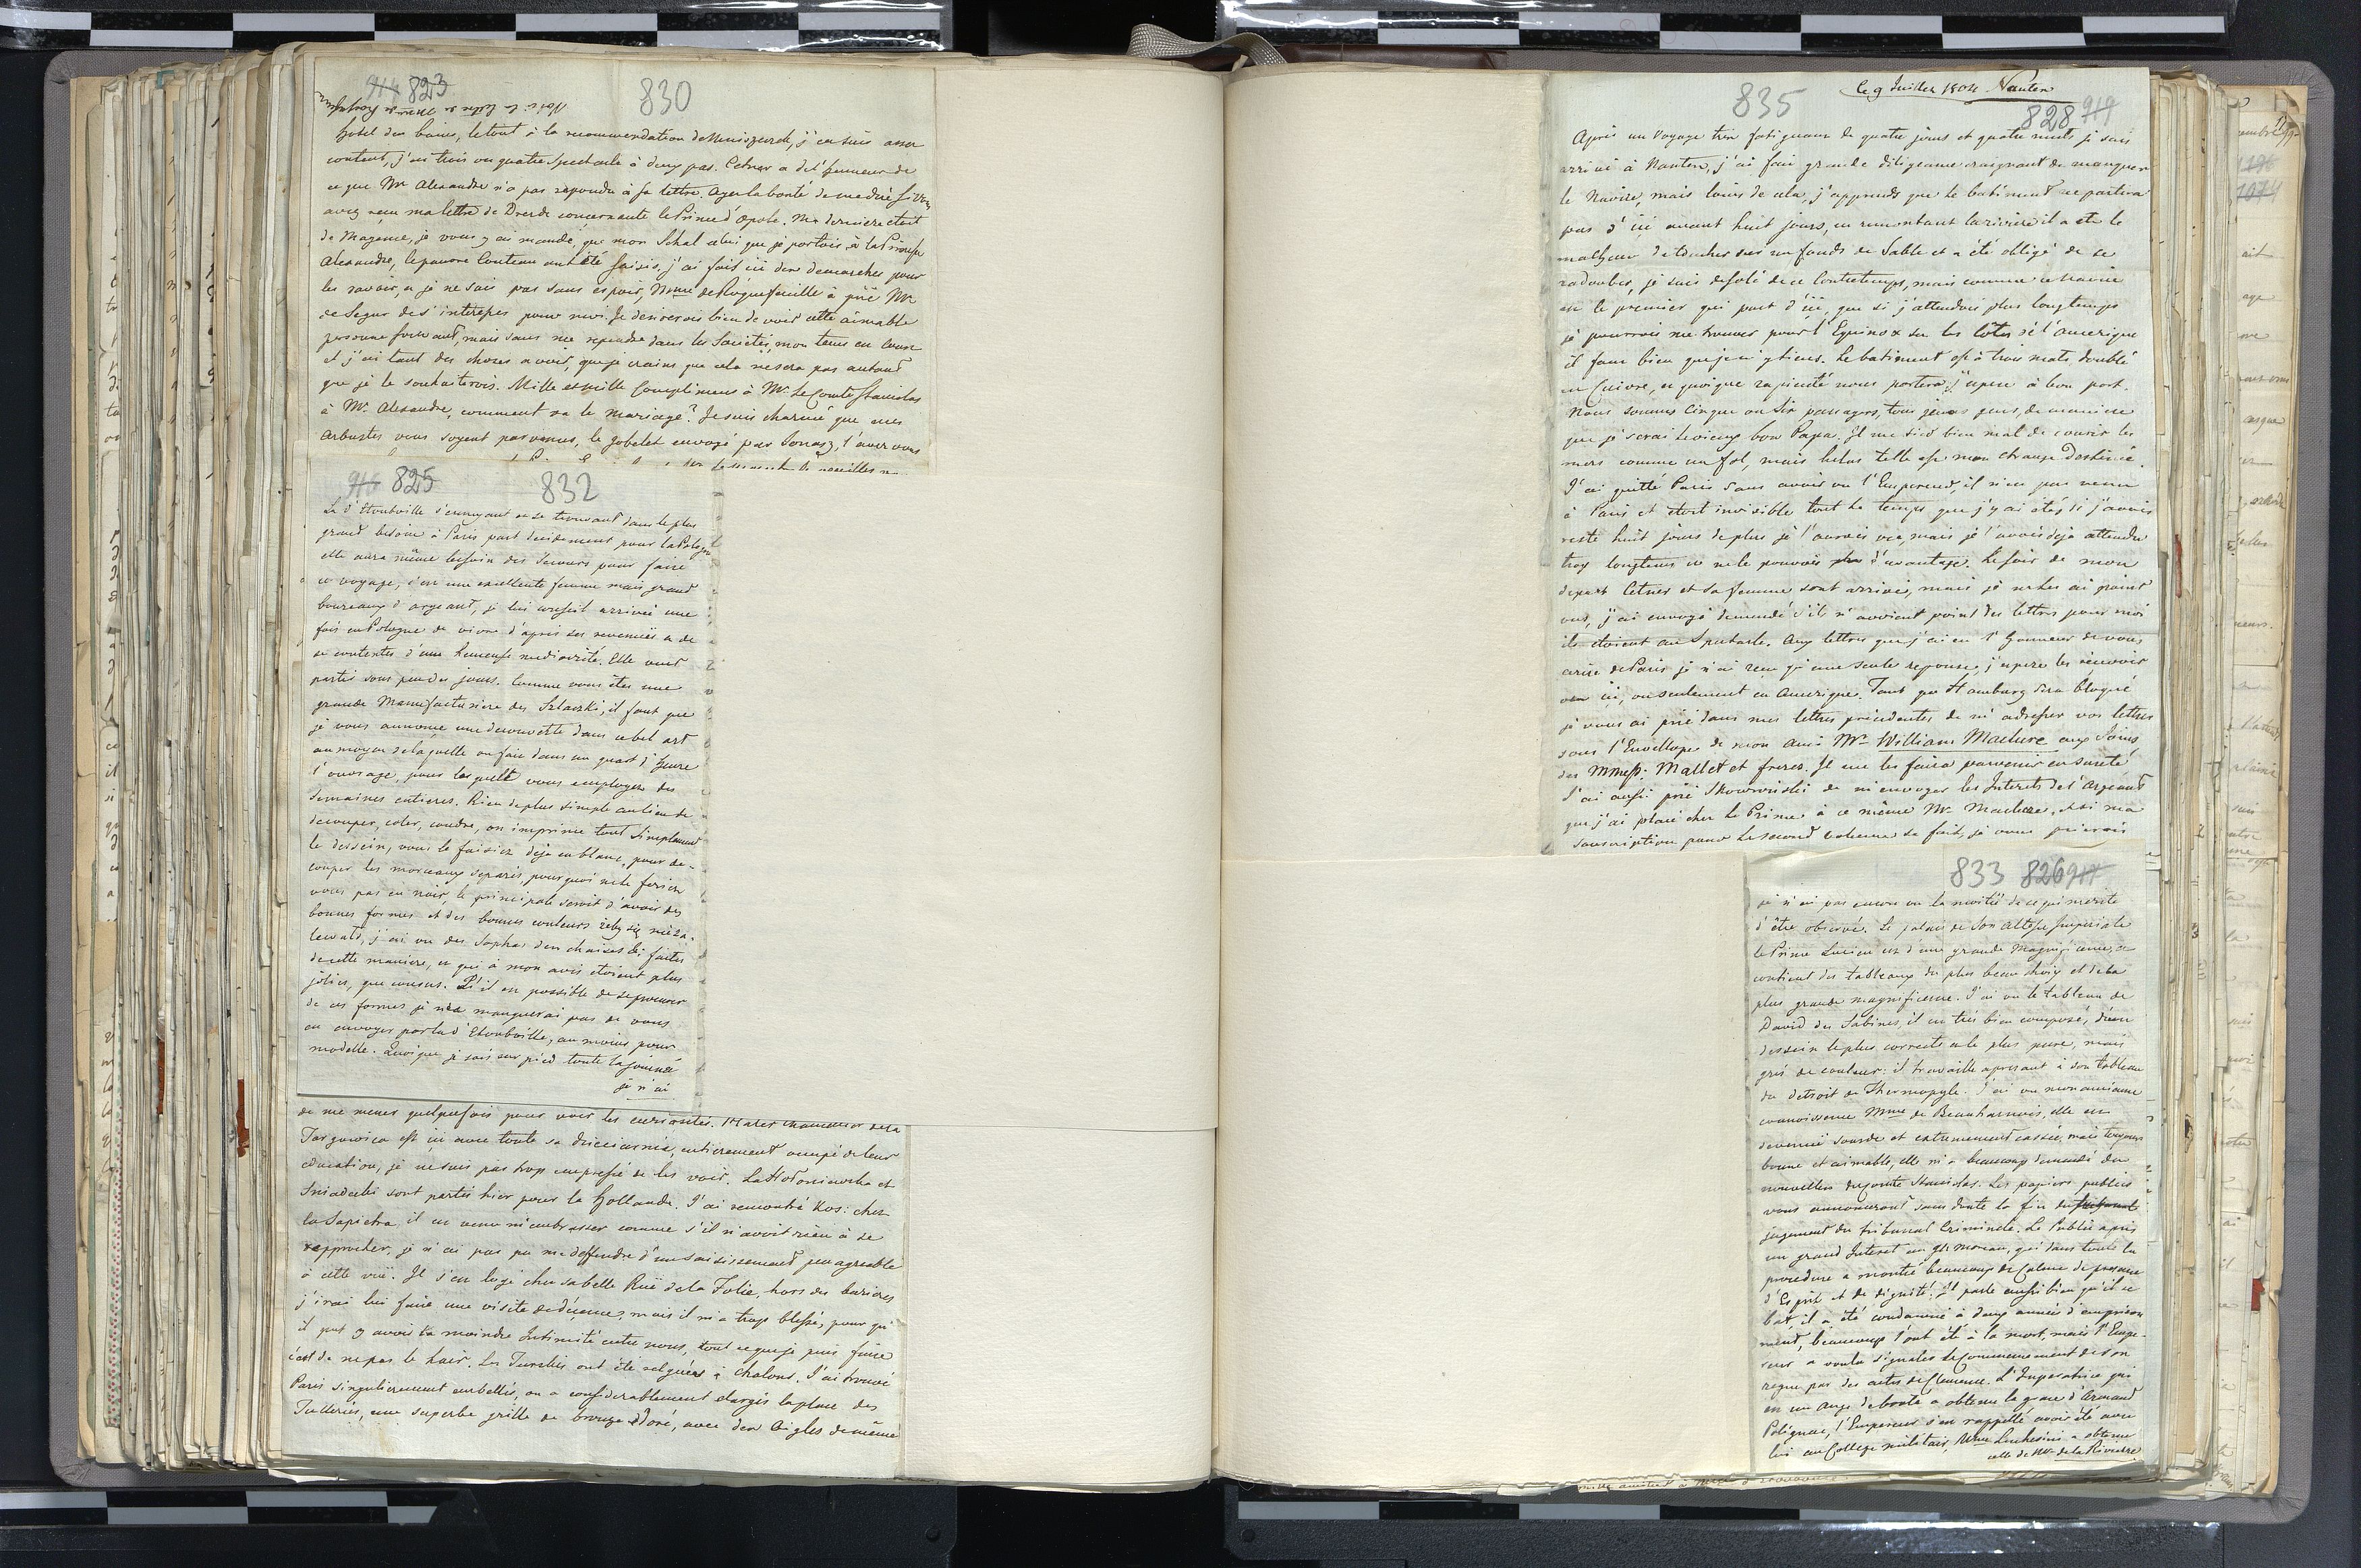 914 823 830
Voici la lettre de Mme de Roquefeuille
hotel des bains, le tout à la recommendation de Kniszarck, j'en suis assez
content, j'ai trois ou quatre spectacle à deux pas. Cetner a dit fumeur de
ce que Mr Alexandre n'a pas repondu à sa lettre. Ayez la bonté de me dire si vous
avez reçu ma lettre de Dresde concernante le Prince d'Opole. Ma derniere etoit
de Mayence, je vous y ai mandé, que mon Schal celui que je portois, à la Princesse
Alexandre, le pauvre Couteau ont été saisis, j'ai fait ici des demarches pour
les ravoir, et je ne suis pas sans espoir, Mme de Roquefeuille à prié Mr
de Segur de s'interesser pour moi. Je desirerois bien de voir cette aimable
personne souvent, mais sans me repandre dans les Societés, mon tems en Cours
et j'ai tant des choses a voir, que je crains que cela ne sera pas autant
que je le souhaiterois. Mille et mille Complimens à Mr Le Comte Stanislas
à Mr Alexandre, comment va le mariage? Je suis charmé que mes
Arbustes vous soyent parvenus, le gobelet envoyé par Sonasz, l'avez vous
916 825 832
La d'Etouteville s'ennuyant et se trouvant dans le plus
grand besoin à Paris part decidement pour la Pologne
elle aura même besoin des secours pour faire
ce voyage, c'est une excellente femme mais grand
bourreaux d'argeant, je lui conseil arrivée une
fois en Pologne de vivre d'après ses revenües et de
se contenter d'une heureuse mediocrité. Elle veut
partir sous peu des jours. Comme vous êtes une
grande Manufacturiere des Szlaczki, il faut que
je vous annonce une decouverte dans ce bel art
au moyen de laquelle on fait dans un quart d'heure
l'ouvrage, pour lesquelle vous employez des
semaines entieres. Rien de plus simple au lieu de
decouper, coler, coudre, on imprime tout simplement
le dessein, vous le faisiez deja en blanc, pour de-
couper les morceaux separés, pourquoi ne le feriez
vous pas en noir, le principale seroit d'avoir des
bonnes formes et des bonnes couleurs żeby się nieza-
lewało, j'ai vu des Sophas des chaises &c faites
de cette maniere, et qui à mon avis etoient plus
jolies, que cousus. S'il est possible de se procurer
de ces formes je ne manquerai pas de vous
en envoyer par la d'Etouteville, au moins pour
modelle. Quoique je sois sur pied toute la journée
je n'ai
de me mener quelquefois pour voir les curiosités.
Targowica est ici avec toute sa dzieciarnia, entierement occupé de leur
education, je ne suis pas trop empressé de les voir. La Hołoniewska et
Sniadecki sont partis hier pour la Hollande. J'ai rencontré Kos: chez
la Sapieha, il est venu m'embrasser comme s'il n'avoit rien à se
reprocher, je n'ai pas pu me deffendre d'un saisissement peu agreable
à cette vüe. Il s'en logé chez sa belle Ruë de la Folie, hors des barieres
j'irai lui faire une visite de decence, mais il m'a trop blessé, pour qu'
il put y avoir la moindre Intimité entre nous, tout ce que je puis faire
c'est de ne pas le hair. Les Turskis ont été relgués à Chalons. J'ai trouvé
Paris singulierement embellis, on a considerablement elargis la place des
Tuilleries, une superbe grille de bronze doré, avec des Aigles de même
835 le 9 Juillet 1804 Nantes
828 919
Après un voyage très fatiguant de quatre jours et quatre nuits je suis
arrivé à Nantes, j'ai fait grande diligeance craignant de manquer
le Navire, mais loins de cela, j'apprends que le batiment ne partira
pas d'ici avant huit jours, en remontant la riviere il a eté le
malheur de toucher sur un fonds de Sable et a été obligé de se
radouber, je suis desolé de ce Contretemps, mais comme ce Navire
est le premier qui part d'ici, que si j'attendois plus longtemps
je pourrois me trouver pour l'Equinox sur les côtes de l'Amerique
il faut bien que je m'y tiens. Le batiment est à trois mats doublé
en Cuivre, et quoique rapiecté nous portera, j'espere à bon port.
Nous sommes Cinque ou Six passagers, tous jeunes gens, de maniere
que je serai le vieux bon Papa. Il me sied bien mal de courir les
mers comme un fol, mais helas telle est mon étrange Destinée.
J'ai quitté Paris sans avoir vu l'Empereur, il n'est pas venu
à Paris et etoit invisible tout le temps que j'y ai eté, si j'avois
resté huit jours de plus je l'aurois vu, mais je l'avois deja attendu
trop longtems et ne le pouvois plus d'avantage. Le soir de mon
depart Cetner et sa femme sont arrivé, mais je ne les ai point
vus, j'ai envoyé demandé s'ils n'avoient point des lettres pour moi
ils etoient au Spectacle. Aux lettres que j'ai eu l'honneur de vous
ecrire de Paris je n'ai reçu qu'une seule reponse, j'espere les recevoir
ou ici, ou seulement en Amerique. Tant que Hamburg sera bloqué
je vous ai prié dans mes lettres precedentes de m'adresser vos lettres
sous l'Envellope de mon Ami Mr William Maclure aux soins
des Mmess. Mallet et freres. Il me les faira parvenir en sureté
J'ai aussi prié Skowronski de m'envoyer les Interets de l'Argeant
que j'ai placé chez le Prince à ce même Mr Maclure, et si ma
souscription pour le second volume se fait, je vous prierois
833 826 917
je n'ai pas encore vu la moitié de ce qui merite
d'être observé. Le palais de Son Altesse Imperiale
le Prince Lucien est d'une grande Magnificence, et
contient des tableaux du plus beau choix et de la
plus grande magnificence. J'ai vu le tableau de
David des Sabines, il est très bien composé, d'un
dessein le plus correcte et le plus pure, mais
gris de couleur: il travaille apresant à son tableau
du detroit de Thermopyle. J'ai vu mon ancienne
connoissance Mme de Beauharnois, elle est
devenuë sourde et extremement cassée, mais toujours
bonne et aimable, elle m'a beaucoup demandé des
nouvelles du Comte Stanislas. Les papiers publics
vous annonceront sans doute la fin du
jugement du tribunal Criminele. Le Public a pris
un grand Interet au Gl Moreau, qui dans toute la
procedure a montré beaucoup de Calme de presence
d'Esprit et de dignité: il parle aussi bien qu'il se
bat, il a été condamné à deux années d'emprison
ment, beaucoup l'ont été à la mort, mais l'Empe-
reur a voulu signaler le Commencement de son
regne par des actes de Clemence. L'Imperatrice qui
est un Ange de bonté a obtenu la grace d'Armand
Polignac, l'Empereur s'est rappellé avoir été avec
lui au College militair, Mme Luchesini a obtenu
celle de Mr de la Rivierre.